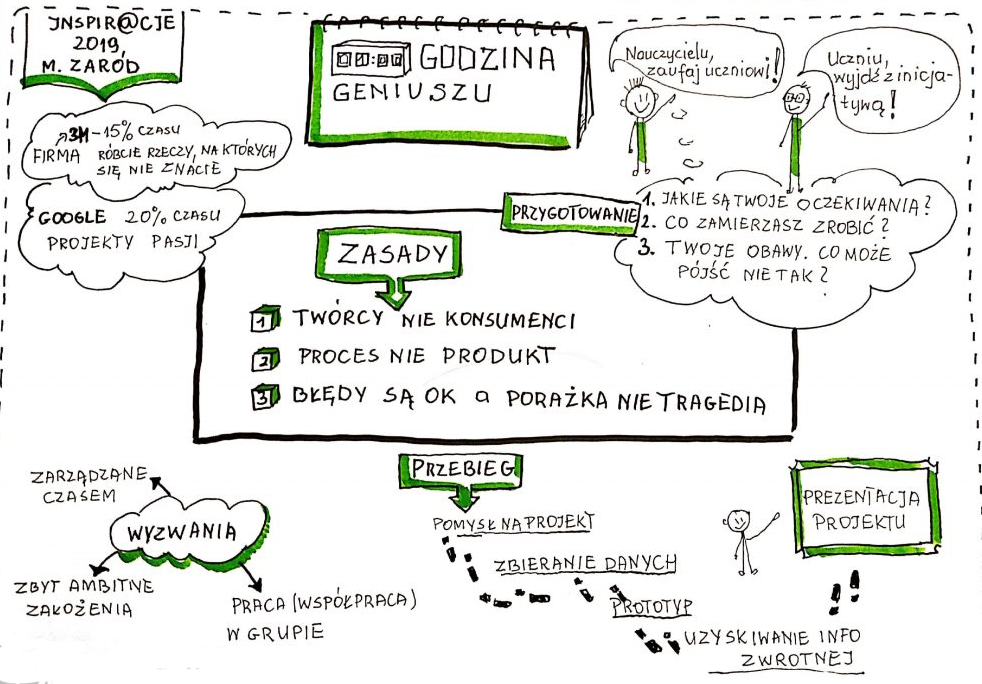 INSPIR@CJE
2019,
M. ZARÓD
00:00 GODZINA
GENIUSZU
Nauczycielu,
zaufaj uczniowi!
Uczniu,
wyjdź z inicja-
tywą!
3M - 15% CZASU
FIRMA RÓBCIE RZECZY, NA KTÓRYCH
SIĘ NIE ZNACIE
GOOGLE 20% CZASU
PROJEKTY PASJI
PRZYGOTOWANIE
1. JAKIE SĄ TWOJE OCZEKIWANIA?
2. CO ZAMIERZASZ ZROBIĆ?
3. TWOJE OBAWY. CO MOŻE
PÓJŚĆ NIE TAK?
ZASADY
1 TWÓRCY NIE KONSUMENCI
2 PROCES NIE PRODUKT
3 BŁĘDY SĄ OK a PORAŻKA NIE TRAGEDIA
WYZWANIA
ZARZĄDZANE
CZASEM
ZBYT AMBITNE
ZAŁOŻENIA
PRACA (WSPÓŁPRACA)
W GRUPIE
PRZEBIEG
POMYSŁ NA PROJEKT
ZBIERANIE DANYCH
PROTOTYP
UZYSKIWANIE INFO
ZWROTNEJ
PREZENTACJA
PROJEKTU